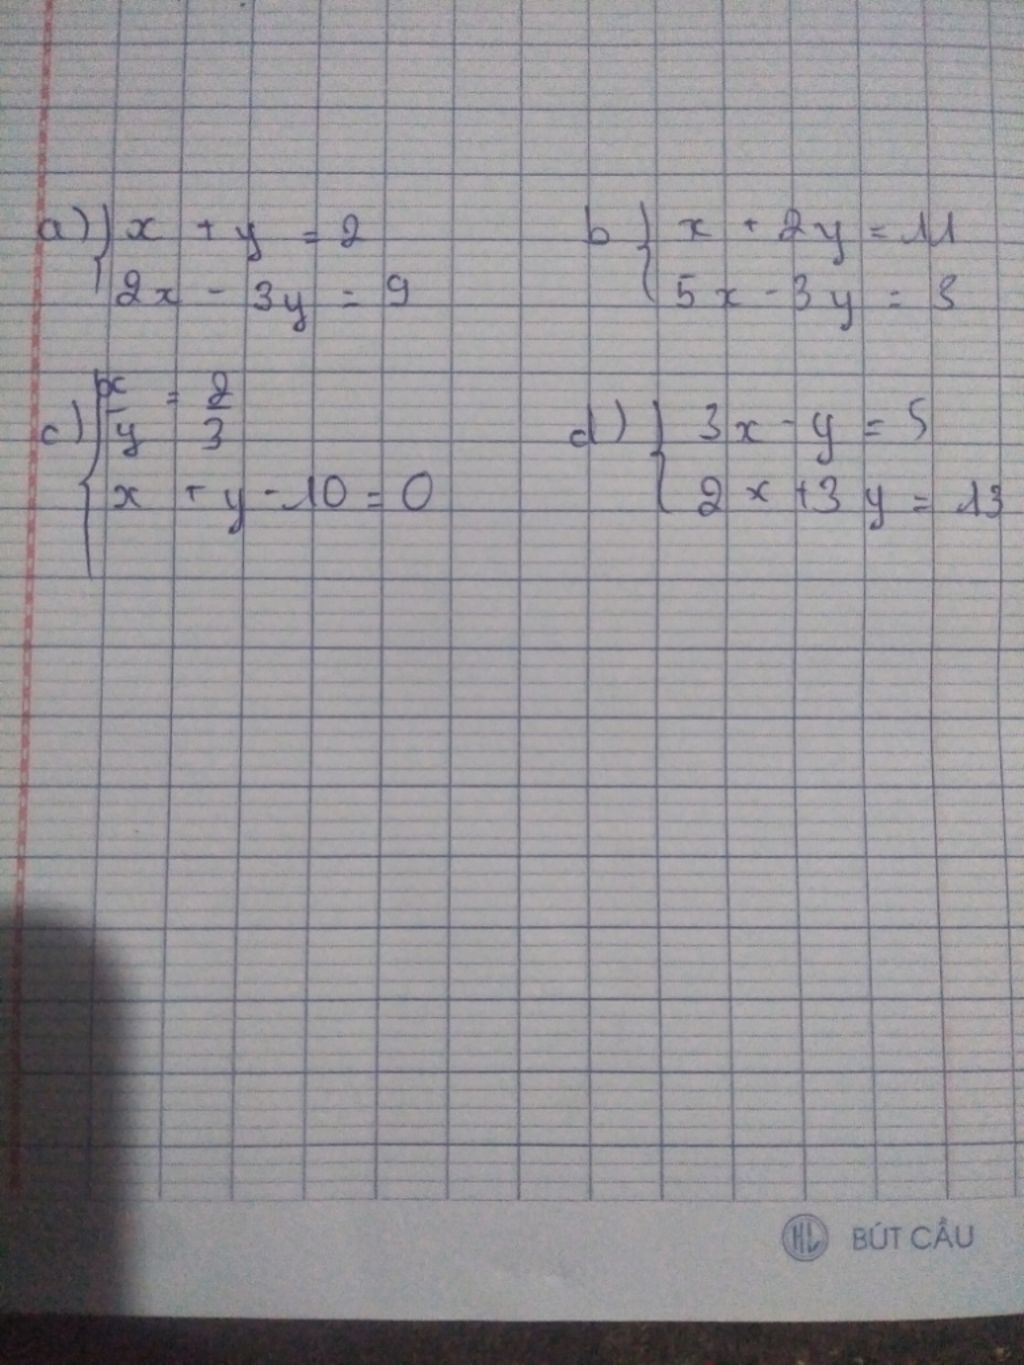 a) { x + y = 2
2x - 3y = 9
b { x + 2y = 11
5x - 3y = 3
c) { x/y = 2/3
x + y - 10 = 0
d) { 3x - y = 5
2x + 3y = 13
HL BÚT CẦU